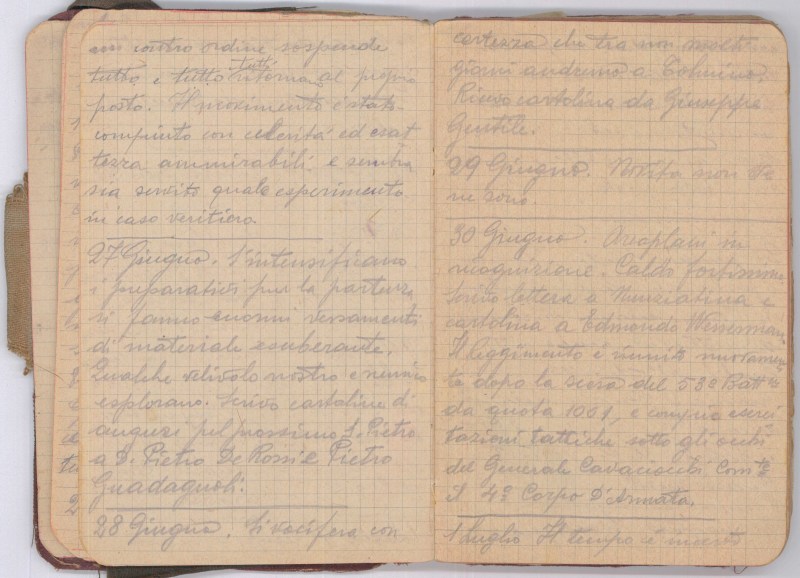 un contro ordine sospende
tutto e tutto tutti ritorna al proprio
posto. Il movimento è stato
compiuto con celerità ed esat
tezza ammirabili e sembra
sia servito quale esperimento
in caso veritiero.
27 Giugno. S'intensificano
i preparativi per la partenza
si fanno enormi versamenti
di materiale esuberante.
Qualche velivolo nostro e nemico
esplorano. Scrivo cartoline di
auguri pel prossimo S. Pietro
a D. Pietro De Rossi e Pietro
Guadagnoli.
28 Giugno. Si vocifera con
certezza che tra non molti
giorni andremo a Tolmino.
Ricevo cartolina da Giuseppe
Gentile.
29 Giugno. Novità non ve
ne sono.
30 Giugno. Areoplani in
ricognizione. Caldo fortissimo
Scrivo lettera a Nunziatina e
cartolina a Edmondo
Il Reggimento è riunito nuovamen
te dopo la scesa del 53º Battne
da quota 1001, e compie eserci
tazioni tattiche sotto gli occhi
del Generale Cavaciocchi Comte
Il 4º Corpo D'Armata.
1 Luglio Il tempo è incerto